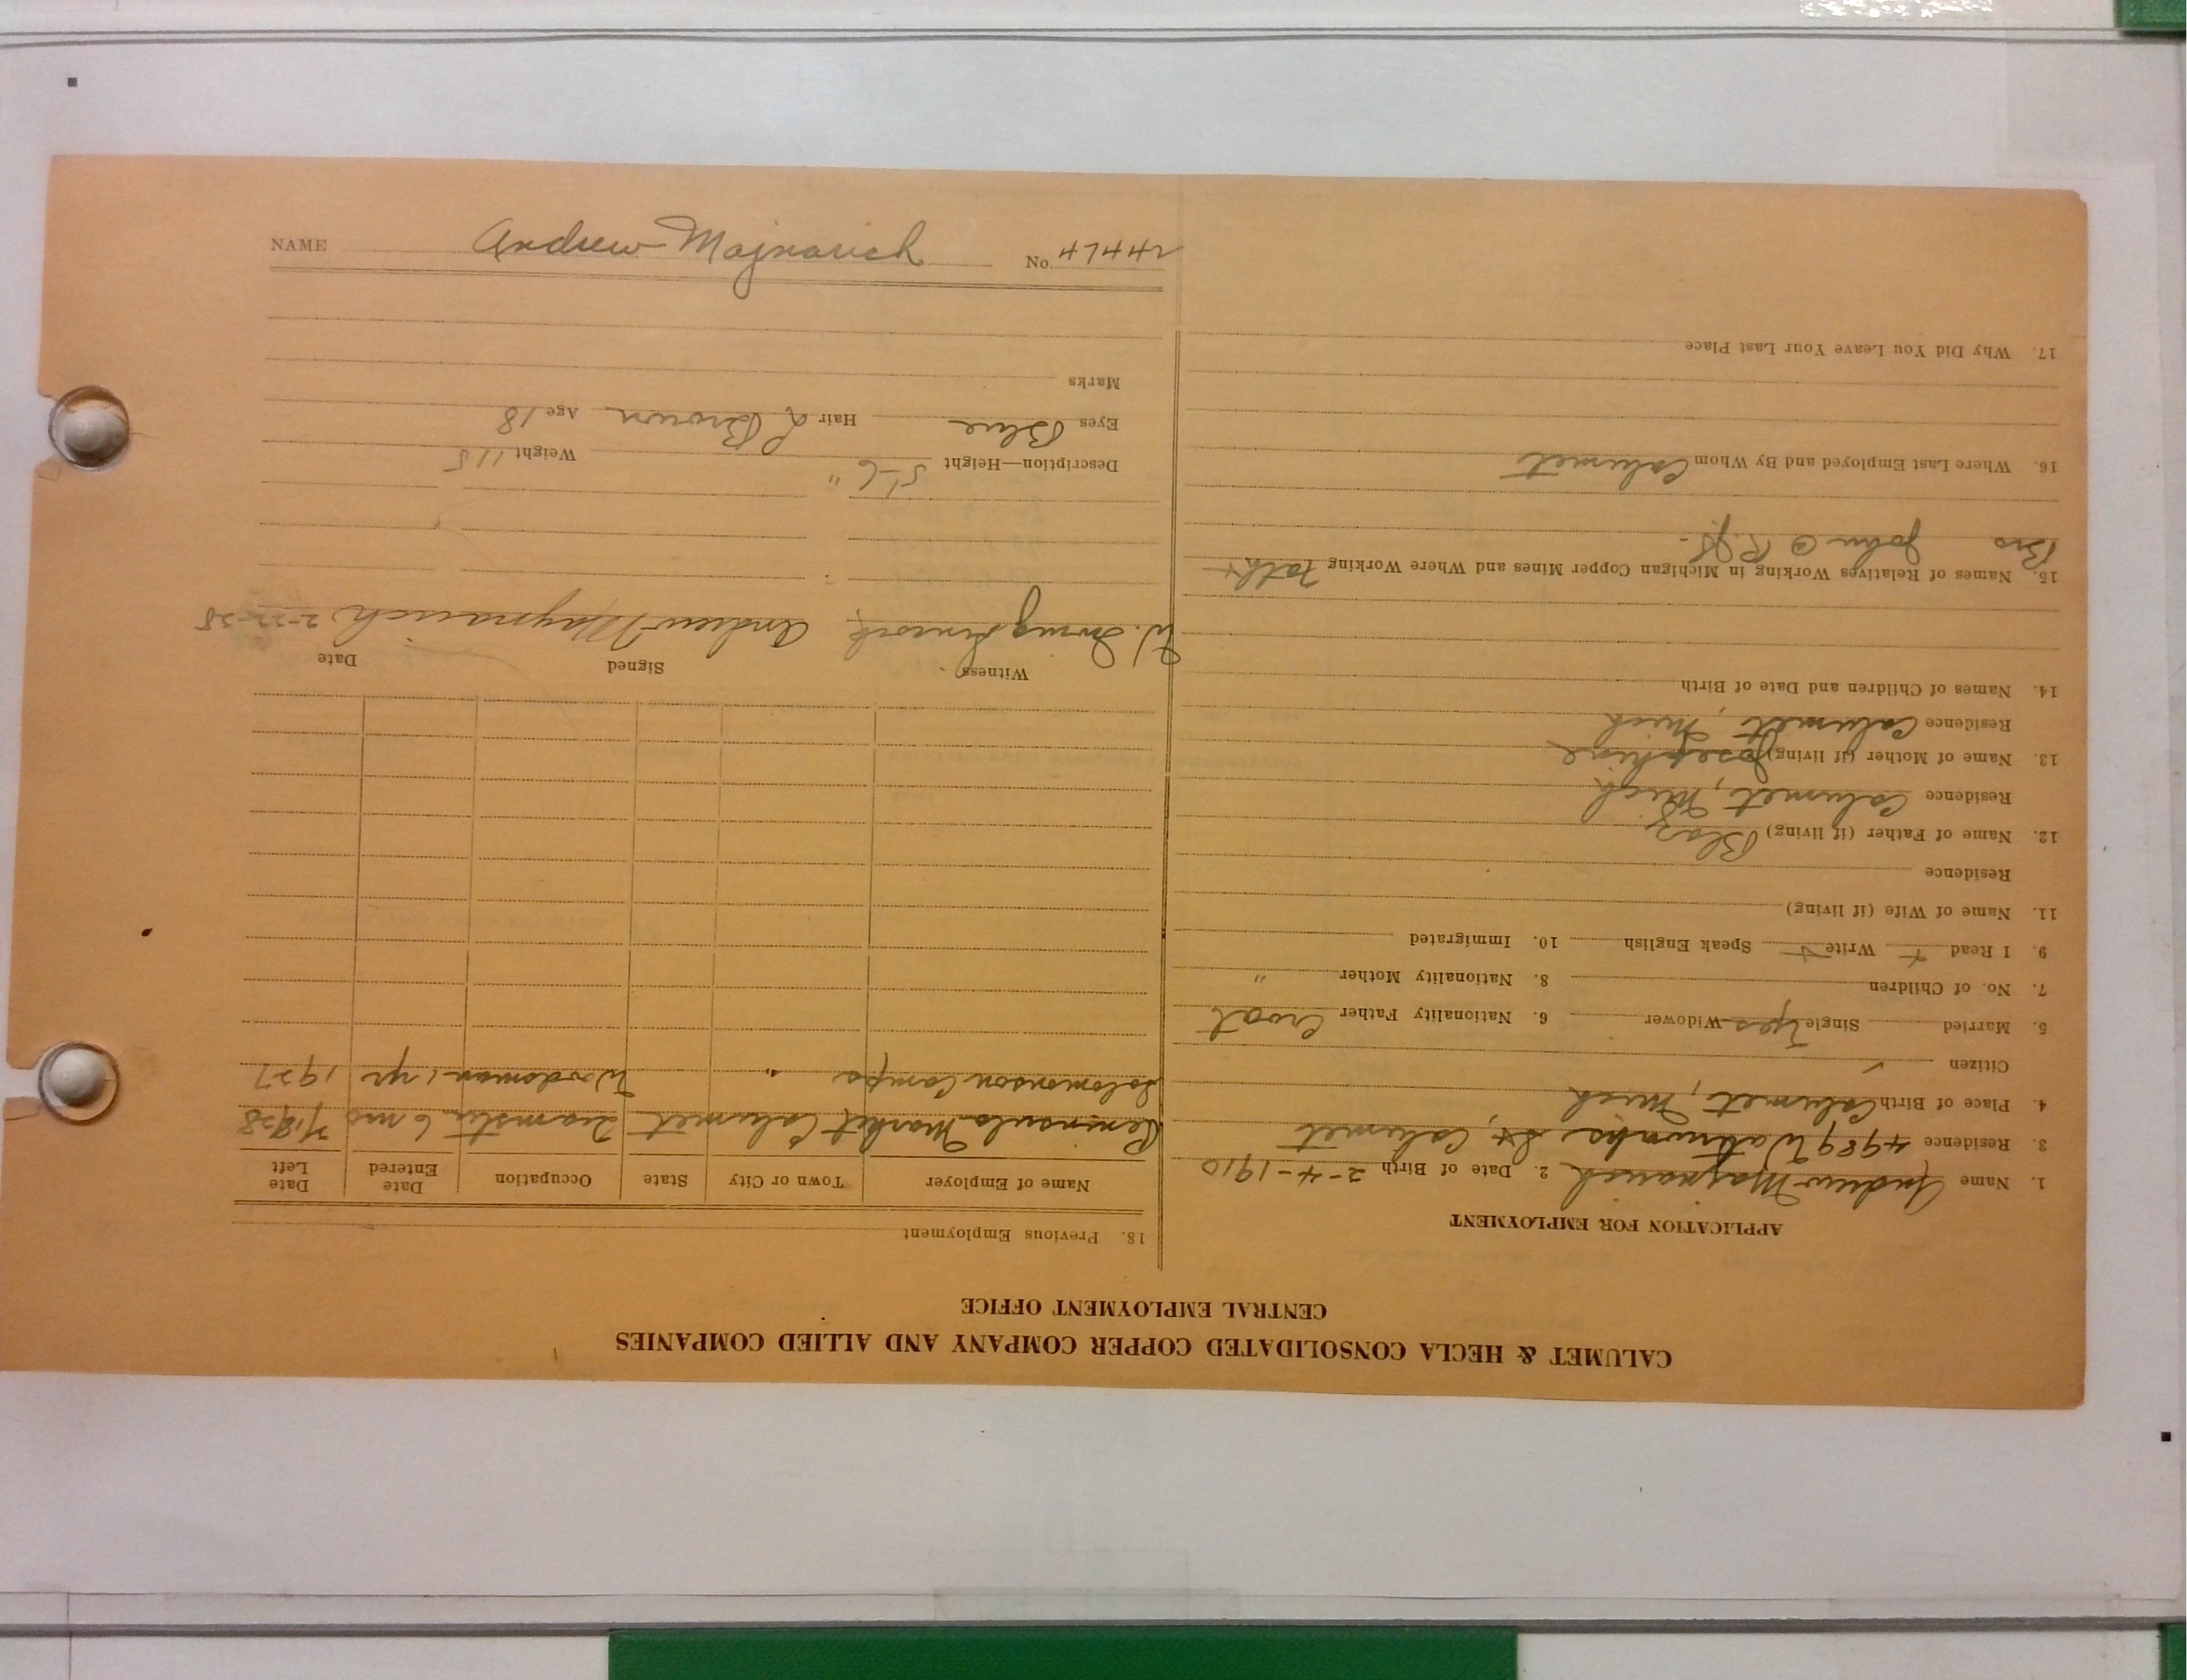 CALUMET & HECLA CONSOLIDATED COPPER COMPANY AND ALLIED COMPANIES
CENTRAL EMPLOYMENT OFFICE
APPLICATION FOR EMPLOYMENT
1. Name Andrew Majnarich 2. Date of Birth 2-4-1910
3. Residence 4989 Waterworks St, Calumet
4. Place of Birth Calumet, Mich
Citizen ✓
5. Married Single yes Widower 6. Nationality Father Croat
7. No. of Children 8. Nationality Mother "
9. I Read + Write + Speak English 10. Immigrated
11. Name of Wife (if living)
Residence
12. Name of Father (if living) Blaz
Residence Calumet, Mich
13. Name of Mother (if living) Josephine
Residence Calumet, Mich
14. Names of Children and Date of Birth
15. Names of Relatives Working in Michigan Copper Mines and Where Working Fath +
Bro John @
16. Where Last Employed and By Whom Calumet
17. Why Did You Leave Your Last Place
18. Previous Employment
Name of Employer Town or City State Occupation Date Entered Date Left
Peninsula Market Calumet Teamster 6 mo
Solomonson Camps " Woodsman 1 yr 1927
Witness Signed Date
W. Andrew Majnarich 2-22-28
Description—Height 5'-6" Weight 115
Eyes Blue Hair L Brown Age 18
Marks
NAME Andrew Majnarich No.